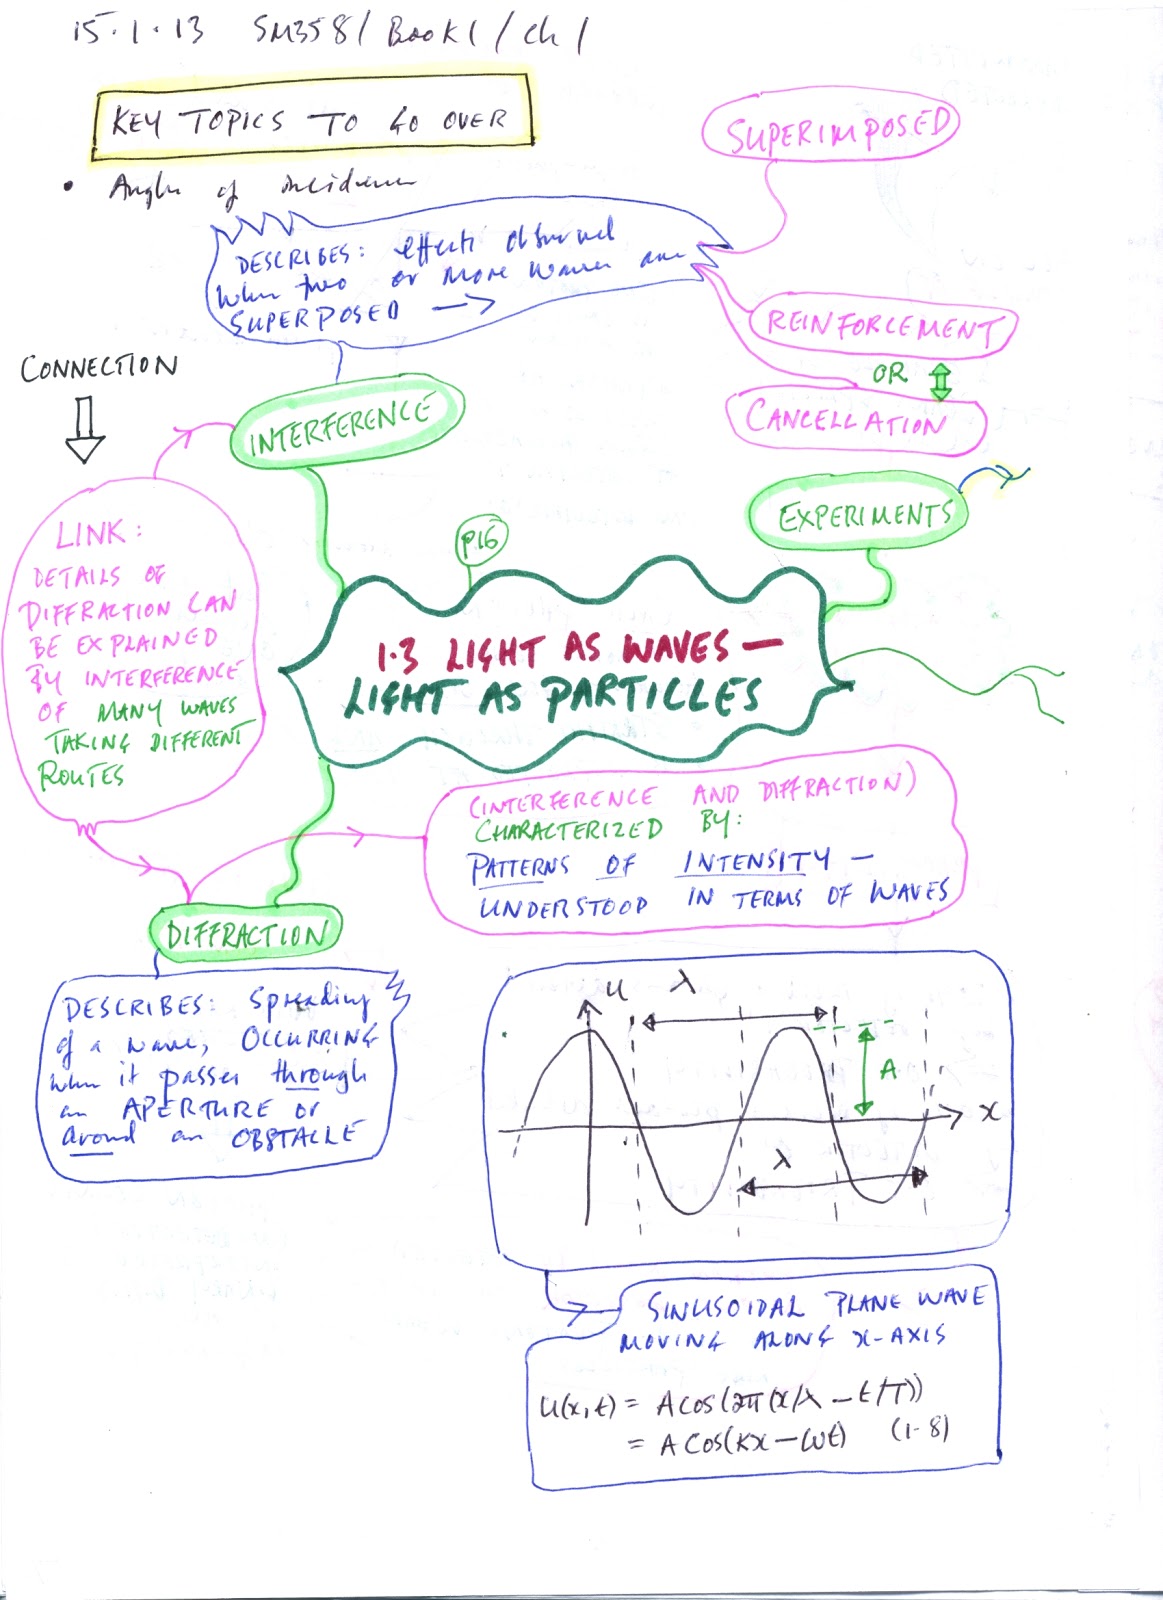 15.1.13 SM358/ Book1/ Ch1
KEY TOPICS TO GO OVER
• Angles of incidence
SUPERIMPOSED
DESCRIBES: effects observed
when two or more waves are
SUPERPOSED
REINFORCEMENT
OR
CANCELLATION
CONNECTION
INTERFERENCE
EXPERIMENTS
P.16
LINK:
DETAILS OF
DIFFRACTION CAN
BE EXPLAINED
BY INTERFERENCE
OF MANY WAVES
TAKING DIFFERENT
ROUTES
1.3 LIGHT AS WAVES —
LIGHT AS PARTICLES
(INTERFERENCE AND DIFFRACTION)
CHARACTERIZED BY:
PATTERNS OF INTENSITY —
UNDERSTOOD IN TERMS OF WAVES
DIFFRACTION
DESCRIBES: Spreading
of a wave, OCCURRING
when it passes through
an APERTURE or
around an OBSTACLE
u
λ
A
x
λ
SINUSOIDAL PLANE WAVE
MOVING ALONG x-AXIS
u(x,t) = A cos(2π(x/λ − t/T))
= A cos(kx − ωt) (1-8)